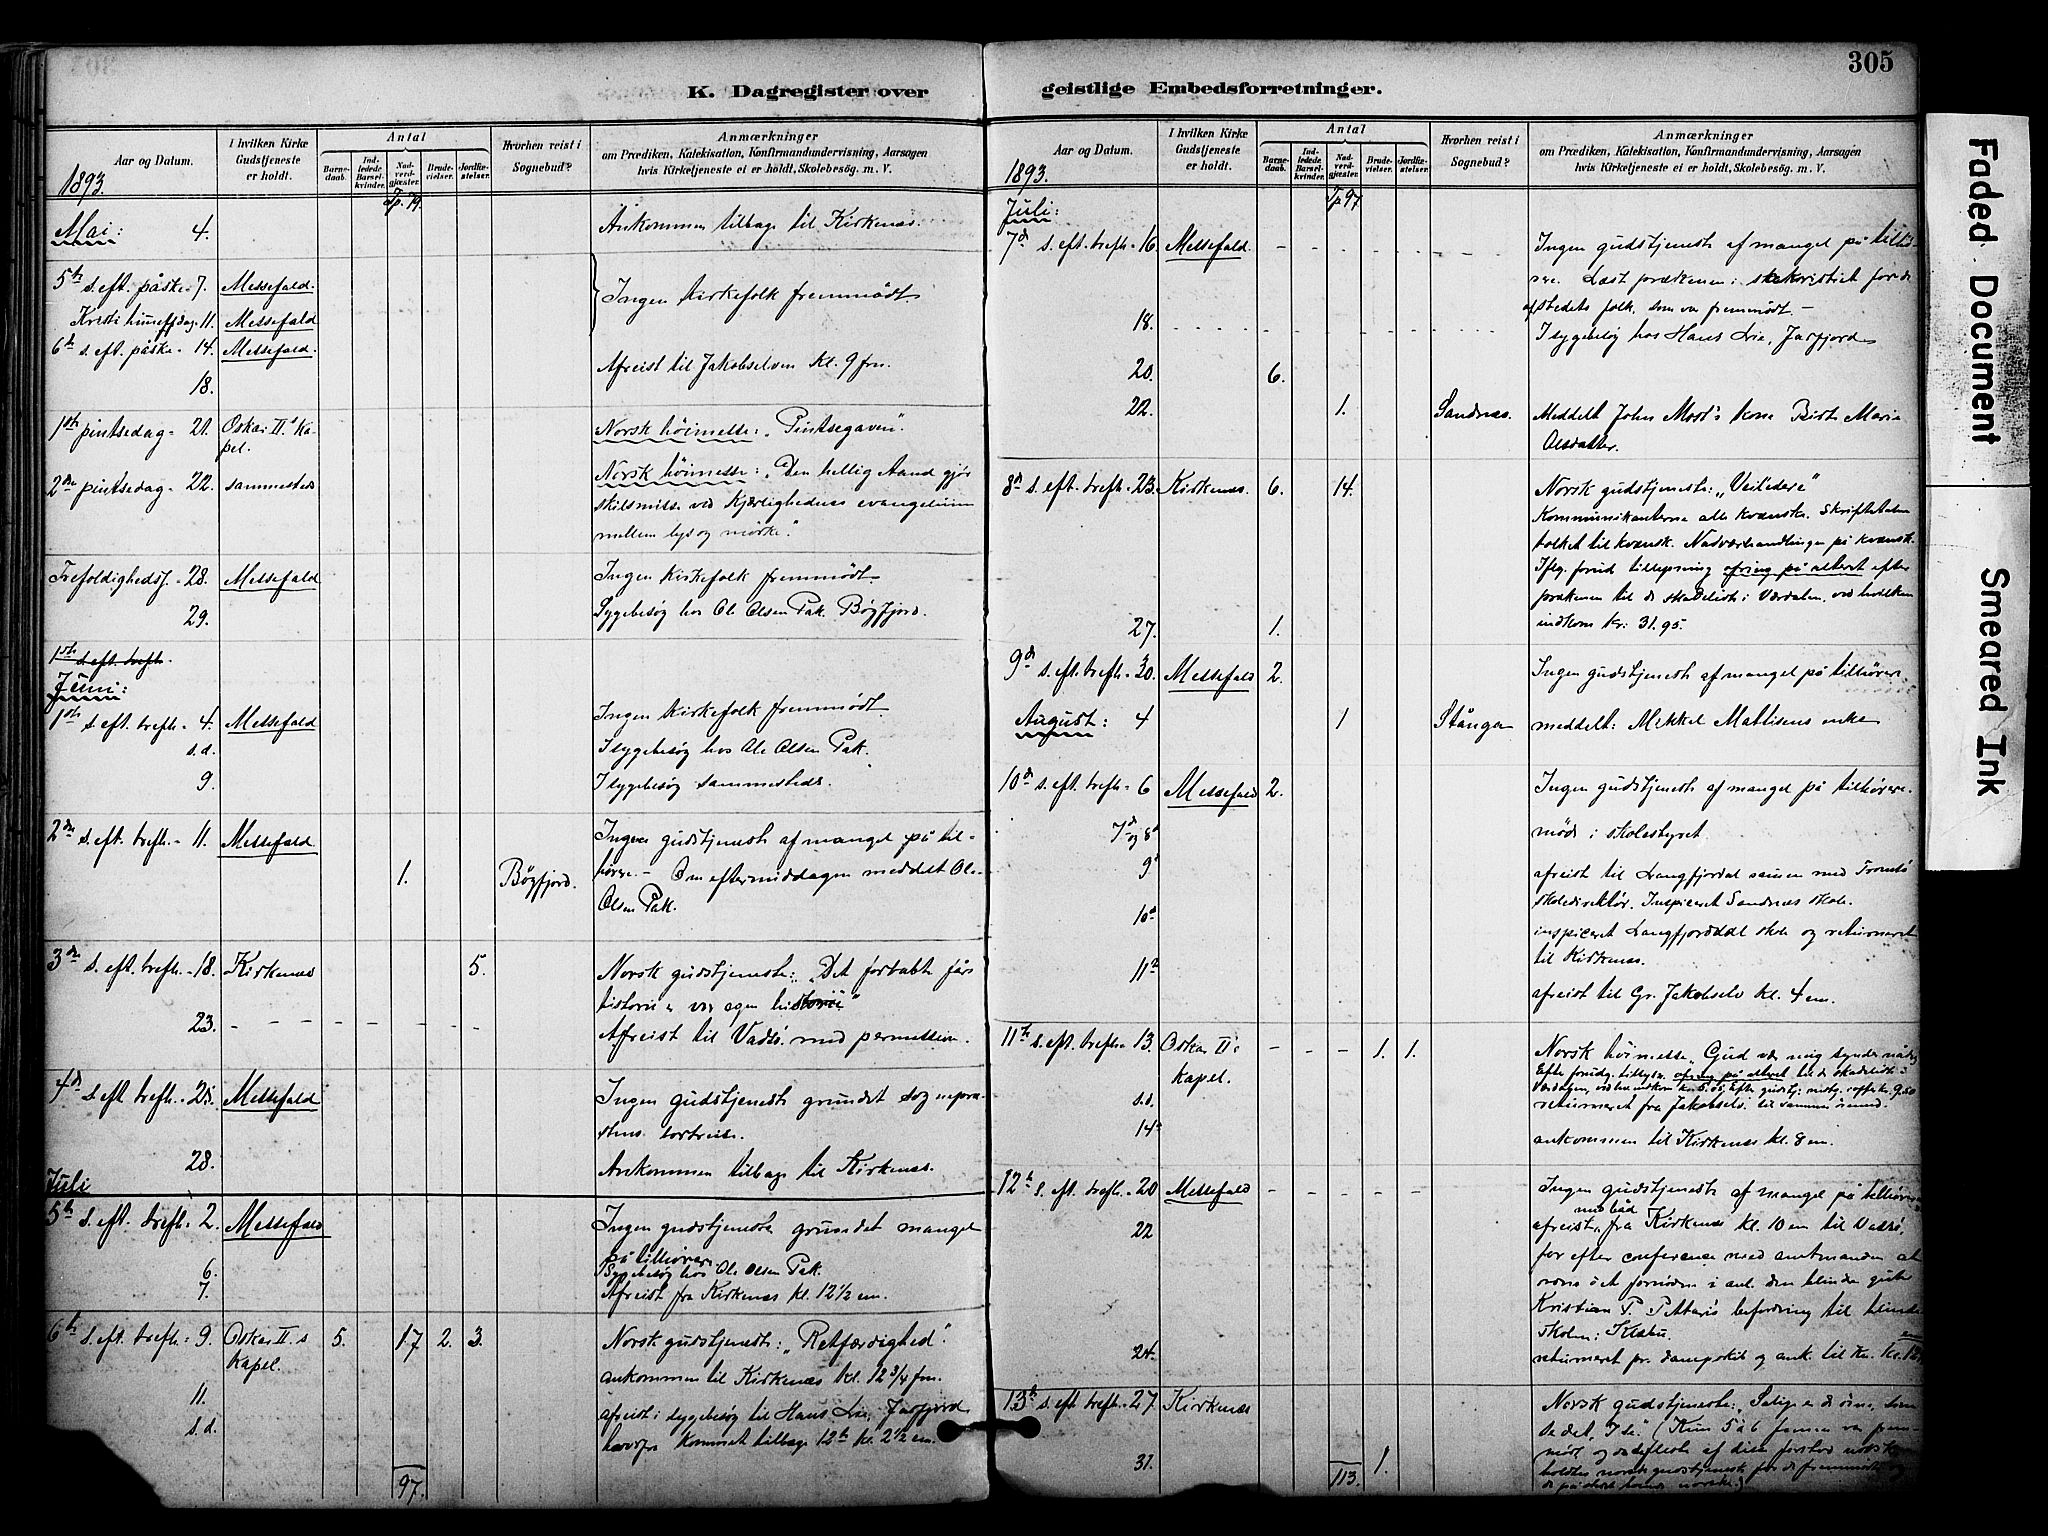 305
K. Dagregister over geistlige Embedsforretninger.
Aar og Datum.
1893.
I hvilken Kirke Gudstjeneste er holdt.
Antal
Barnedaab.
Indledede Barselkvinder.
Nadverdgjæster.
Brudevielser.
Jordfæstelser.
Hvorhen reist i Sognebud?
Anmærkninger
om Prædiken, Katekisation, Konfirmandundervisning, Aarsagen
hvis Kirketjeneste ei er holdt, Skolebesøg. m. V.
Tp. 79.
Mai: 4. Ankommen tilbage til Kirkenæs.
5te s. eft. påske 7. Messefald. Ingen kirkefolk fremmødt
Kristi himelfdag 11. Messefald
6te s. eft. påske 14. Messefald.
18. Afreist til Jakobselven kl. 9 fm.
1ste pintsedag 21. Oskar II.s Kapel. Norsk høimesse: "Pintsegaven".
2den pintsedag 22. sammesteds Norsk høimesse: "Den hellig Aand gjør
skilsmisse ved Kjærlighedens evangelium
mellem lys og mørke."
Trefoldighedsf. 28. Messefald Ingen Kirkefolk fremmødt
29. Sygebesøg hos Ole Olsen Pak. Bøgfjord.
1ste s. eft. trefh.
Juni:
1ste s. eft. trefh. 4. Messefald Ingen Kirkefolk fremmødt.
s.d. I sygebesøg hos Ole Olsen Pak.
9. I sygebesøg sammesteds.
2den s. eft. trefh. 11. Messefald Ingen gudstjeneste af mangel på til-
1. Bøgfjord. hørere. - Om eftermiddagen meddelt Ole
Olsen Pak.
3die s. eft. trefh. 18. Kirkenæs 5. Norsk gudstjeneste: "Det fortabte fårs
historie er vor egen historie"
23. Afreist til Vadsø med permission.
4de s. eft trefh. 25. Messefald Ingen gudstjeneste grundet sognepræ-
stens bortreise.
28. Ankommen tilbage til Kirkenæs.
Juli
5te s. eft. trefh. 2. Messefald Ingen gudstjeneste grundet mangel
på tilhørere.
6. I sygebesøg hos Ole Olsen Pak.
7. Afreist fra Kirkenæs kl. 12 1/2 em.
6te s. eft. trefh. 9. Oskar II.s Kapel. 5. 17 2. 3. Norsk gudstjeneste: "Retfærdighed".
11. ankommen til Kirkenæs kl. 12 3/4 fm.
s.d. afreist i sygebesøg til Hans Lie, Jarfjord
hvorfra kommet tilbage 12te kl. 2 1/2 em.
97.
Aar og Datum.
1893.
I hvilken Kirke Gudstjeneste er holdt.
Antal
Barnedaab.
Indledede Barselkvinder.
Nadverdgjæster.
Brudevielser.
Jordfæstelser.
Hvorhen reist i Sognebud?
Anmærkninger
om Prædiken, Katekisation, Konfirmandundervisning, Aarsagen
hvis Kirketjeneste ei er holdt, Skolebesøg. m. V.
Tp 97
Juli:
7de s. eft. trefh. 16. Messefald. Ingen gudstjeneste af mangel på tilhø-
rere. Læst prædikenen i sakristiet for de
af stedets folk, som var fremmødt. -
18. I sygebesøg hos Hans Lie, Jarfjord
20. 6.
22. 1. Sandnæs. Meddelt John Most's kone Birte Marie
Olsdatter.
8de s. eft. trefh. 23. Kirkenæs. 6. 14. Norsk gudstjeneste: "Veiledere"
Kommunikanterne alle kvænske. Skriftetalen
tolket til kvænsk. Nadværhandlingen på kvænsk.
Iflg. forud tillysning ofring på alteret efter
prækenen til de skadelidte i Værdalen, ved hvilken
indkom kr: 31.95.
27. 1.
9de s. eft. trefh. 30. Messefald 2. Ingen gudstjeneste af mangel på tilhørere.
August: 4 1 Stångan meddelt: Mikkel Mattisens enke
10de s. eft. trefh. 6 Messefald 2. Ingen gudstjeneste af mangel på tilhørere.
7de og 8de møde i skolestyret.
9de afreist til Langfjordal sammen med Tromsø
skoledirektør. Inspiceret Sandnæs skole.
10de inspiceret Langfjorddal skole og returneret
til Kirkenæs.
11te afreist til Gr. Jakobselv kl. 4 em.
11te s. eft. trefh. 13. Oskar II's Kapel. 1. 1. Norsk høimesse "Gud vær mig synder nådig"
Efter forudg. tillysn. ofring på alteret til de skadelidte i
s.d. returneret fra Jakobselv
14de ankommen til Kirkenæs kl. 8 em.
12te s. eft. trefh. 20 Messefald Ingen gudstjeneste af mangel på tilhørere
med båd
22 afreist, fra Kirkenæs kl. 10 em til Vadsø,
for efter conference med amtmanden at
ordne det fornødne i anl. den blinde gut
Kristian P. befordring til blinde
skolen i Klæbu.
24. returneret pr. dampskib og ank. til Kn. kl. 12 em
13de s. eft trefh. 27 Kirkenæs Norsk gudstjeneste: "Salige er de øine, som
se det, I se." (Kun 5 à 6 personer var frem-
mødt og de fleste af disse forstod norsk
holdtes norsk gudstjeneste for de fremmødte
31. 1.
113.
Faded Document
Smeared Ink